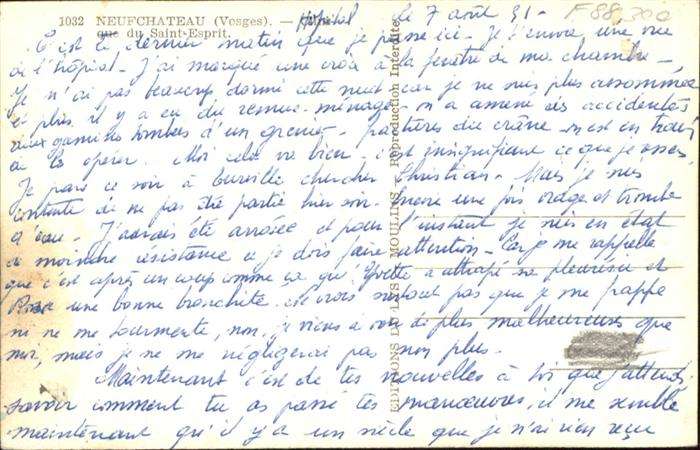 1032 NEUFCHATEAU (Vosges). — Hôpital le 7 août 51 - F88,300
que du Saint-Esprit.
C'est le dernier matin que je passe ici - Je t'envoie une vue
de l'hôpital - J'ai marqué une croix à la fenêtre de ma chambre -
Je n'ai pas beaucoup dormi cette nuit car je ne suis plus assommée
et puis il y a eu du remue-ménage - on a amené des accidentés
deux gamines tombées d'un grenier - fractures du crâne - on est en train
de les opérer. Moi cela va bien - c'est insignifiant ce que j'
Je pars ce soir à chercher Christian - Mais je suis
contente de ne pas être partie hier soir - encore une fois orage et trombe
d'eau - J'aurais été arrosée et pour l'instant je suis en état
de moindre résistance et je dois faire attention - Car je me rappelle
que c'est après un coup comme ça qu'Yvette a attrapé sa pleurésie et
une bonne bronchite. Ne crois surtout pas que je me frappe
ni ne me tourmente, non, je viens à voir de plus malheureuses que
moi, mais je ne me négligerai pas non plus.
Maintenant c'est de tes nouvelles à toi que j'attends
savoir comment tu as passé tes manœuvres, il me semble
maintenant qu'il y a un siècle que je n'ai rien reçu
EDITIONS DU LYS - MOULINS - Reproduction Interdite